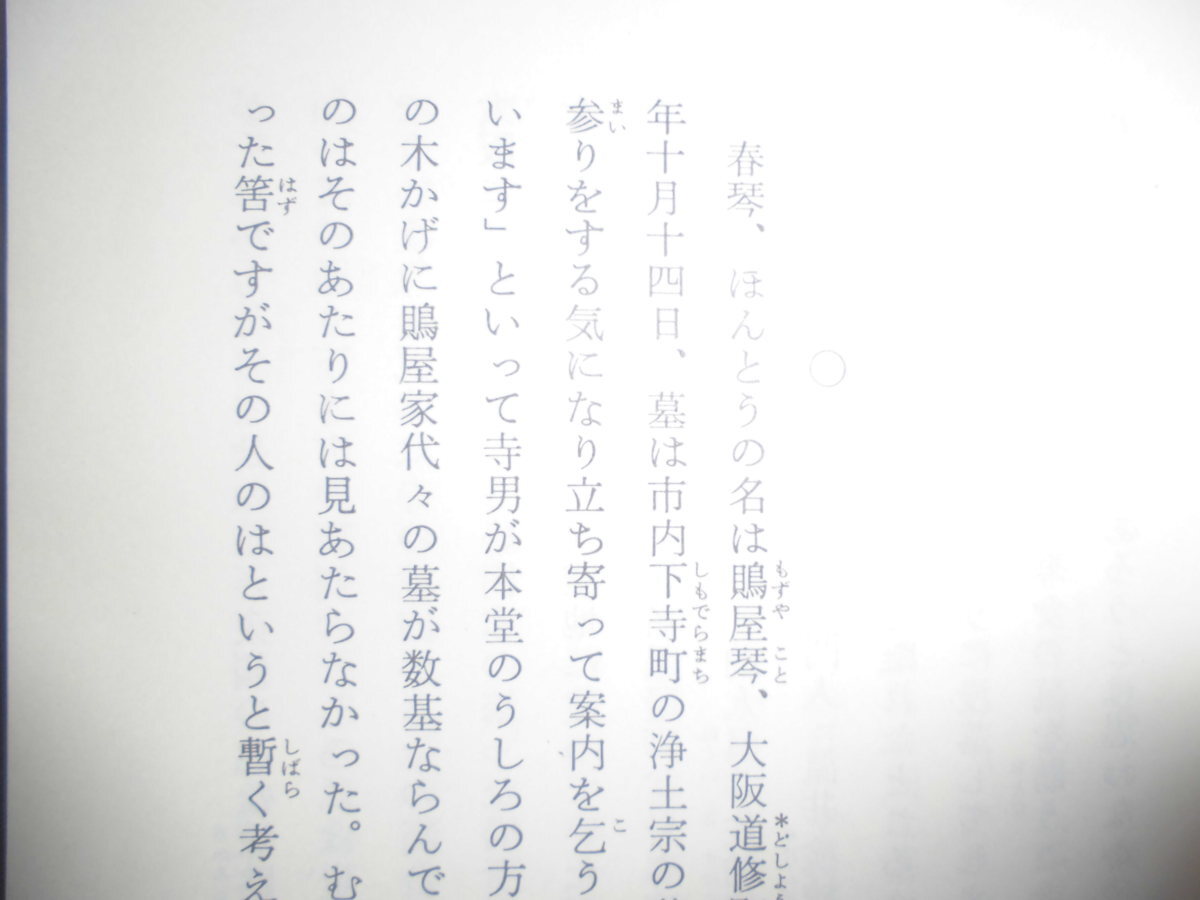 ○
春琴、ほんとうの名は鵙屋琴、大阪道修
年十月十四日、墓は市内下寺町の浄土宗の
参りをする気になり立ち寄って案内を乞う
います」といって寺男が本堂のうしろの方
の木かげに鵙屋家代々の墓が数基ならんで
のはそのあたりには見あたらなかった。む
った筈ですがその人のはというと暫く考え